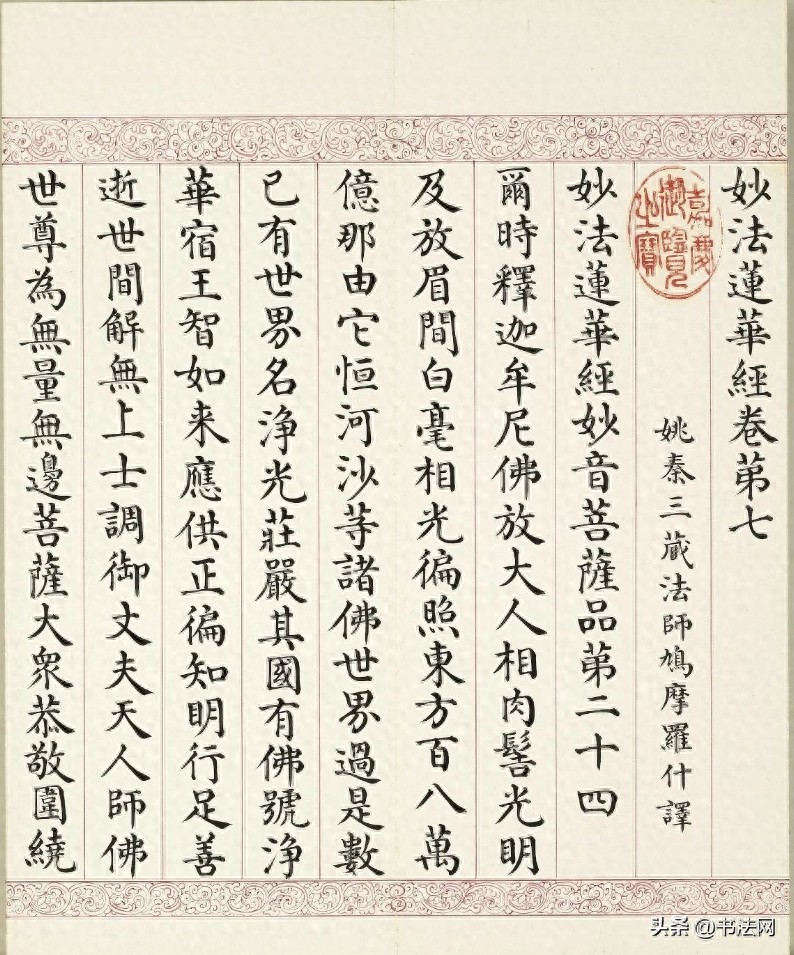 妙法蓮華經卷第七
嘉慶御覽之寶
姚秦三藏法師鳩摩羅什譯
妙法蓮華經妙音菩薩品第二十四
爾時釋迦牟尼佛放大人相肉髻光明
及放眉間白毫相光徧照東方百八萬
億那由它恒河沙等諸佛世界過是數
已有世界名淨光莊嚴其國有佛號淨
華宿王智如来應供正徧知明行足善
逝世間解無上士調御丈夫天人師佛
世尊為無量無邊菩薩大衆恭敬圍繞
头条 @书法网